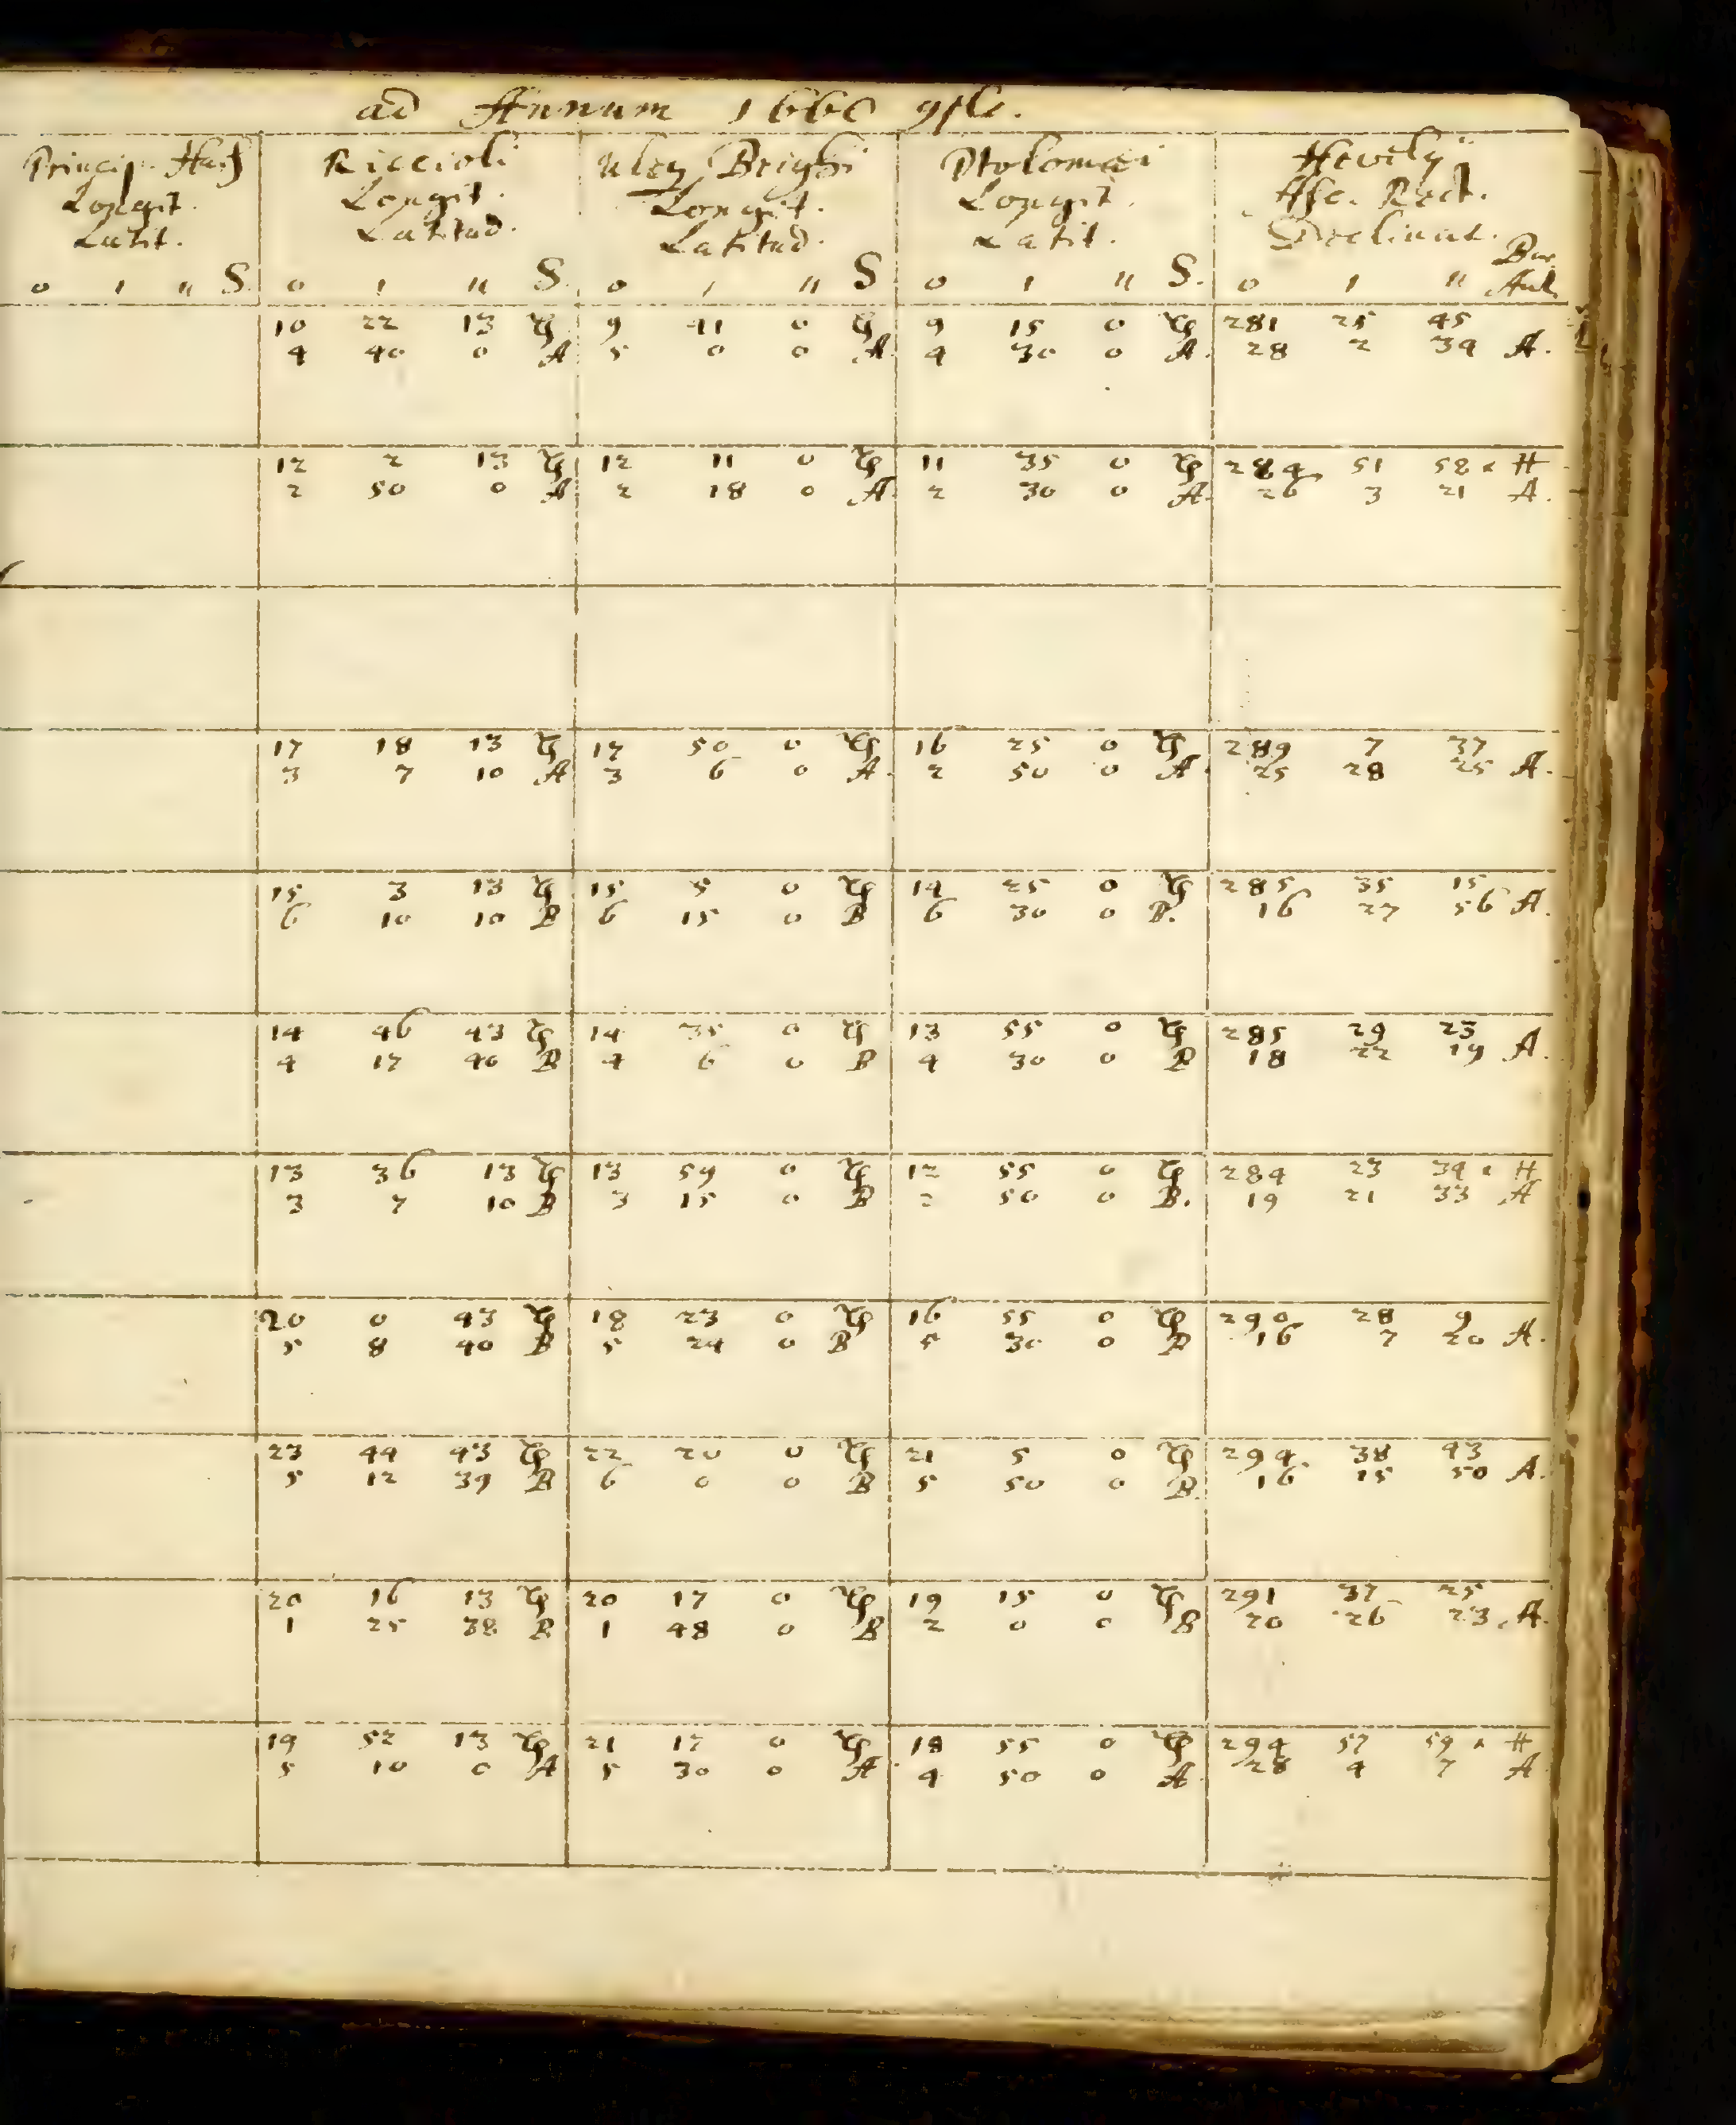 ad Annum 1660 cple.
Princip. Hass Riccioli Uleg Beighi Ptolomaei Hevely
Longit. Longit. Longit. Longit. Asc. Rect.
Latit. Latitud. Latitud. Latit. Declinat. Bor
o ı ıı S o ı ıı S. o ı ıı S o ı ıı S. o ı ıı Aul.
10 22 13 ♑ 9 41 0 ♑ 9 15 0 ♑ 281 25 45
4 40 0 A 5 0 0 A. 4 30 0 A. 28 2 34 A.
12 2 13 ♑ 12 11 0 ♑ 11 35 0 ♑ 284 51 58 * H
2 50 0 A 2 18 0 A. 2 30 0 A. 26 3 21 A.
17 18 13 ♑ 17 50 0 ♑ 16 25 0 ♑ 289 7 37
3 7 10 A 3 6 0 A. 2 50 0 A. 25 28 25 A.
15 3 13 ♑ 15 5 0 ♑ 14 25 0 ♑ 285 35 15
6 10 10 B 6 15 0 B 6 30 0 B. 16 27 56 A.
14 46 43 ♑ 14 35 0 ♑ 13 55 0 ♑ 285 29 23
4 17 40 B 4 6 0 B 4 30 0 B 18 22 19 A.
13 36 13 ♑ 13 59 0 ♑ 12 55 0 ♑ 284 23 34 * H
3 7 10 B 3 15 0 B 2 50 0 B. 19 21 33 A
20 0 43 ♑ 18 23 0 ♑ 16 55 0 ♑ 290 28 9
5 8 40 B 5 24 0 B 5 30 0 B 16 7 20 A.
23 44 43 ♑ 22 20 0 ♑ 21 5 0 ♑ 294 38 43
5 12 39 B 6 0 0 B 5 50 0 B. 16 15 50 A.
20 16 13 ♑ 20 17 0 ♑ 19 15 0 ♑ 291 37 25
1 25 38 B 1 48 0 B 2 0 0 B 20 26 23 A.
19 52 13 ♑ 21 17 0 ♑ 18 55 0 ♑ 294 57 59 * H
5 10 0 A 5 30 0 A 4 50 0 A 28 4 7 A